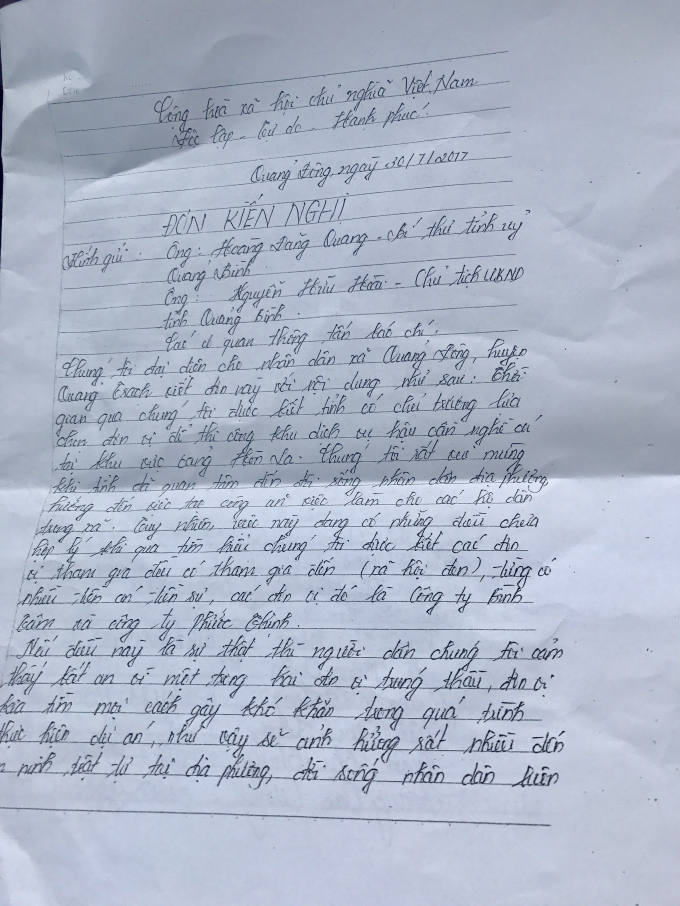 Cộng hòa xã hội chủ nghĩa Việt Nam
Độc lập - Tự do - Hạnh phúc!
Quảng Đông ngày 30/7/2017
ĐƠN KIẾN NGHỊ
Kính gửi: Ông: Hoàng Đăng Quang - Bí thư tỉnh uỷ
Quảng Bình
Ông: Nguyễn Hữu Hoài - Chủ tịch UBND
tỉnh Quảng Bình.
Các cơ quan thông tấn báo chí.
Chúng tôi đại diện cho nhân dân xã Quảng Đông, huyện
Quảng Trạch viết đơn này với nội dung như sau: Thời
gian qua chúng tôi được biết tỉnh có chủ trương lựa
chọn đơn vị để thi công khu dịch vụ hậu cần nghề cá
tại khu vực cảng Hòn La. Chúng tôi rất vui mừng
khi tỉnh đã quan tâm đến đời sống nhân dân địa phương,
hướng đến việc tạo công ăn việc làm cho các hộ dân
trong xã. Tuy nhiên, việc này đang có những điều chưa
hợp lý khi qua tìm hiểu chúng tôi được biết các đơn
vị tham gia đều có tham gia đến (xã hội đen), từng có
nhiều tiền án tiền sự, các đơn vị đó là Công ty Bình
Tâm và công ty Phước Thịnh.
Nếu điều này là sự thật thì người dân chúng tôi cảm
thấy bất an vì một trong hai đơn vị trúng thầu, đơn vị
kia tìm mọi cách gây khó khăn trong quá trình
thực hiện dự án, như vậy sẽ ảnh hưởng rất nhiều đến
an ninh trật tự tại địa phương, đời sống nhân dân luôn